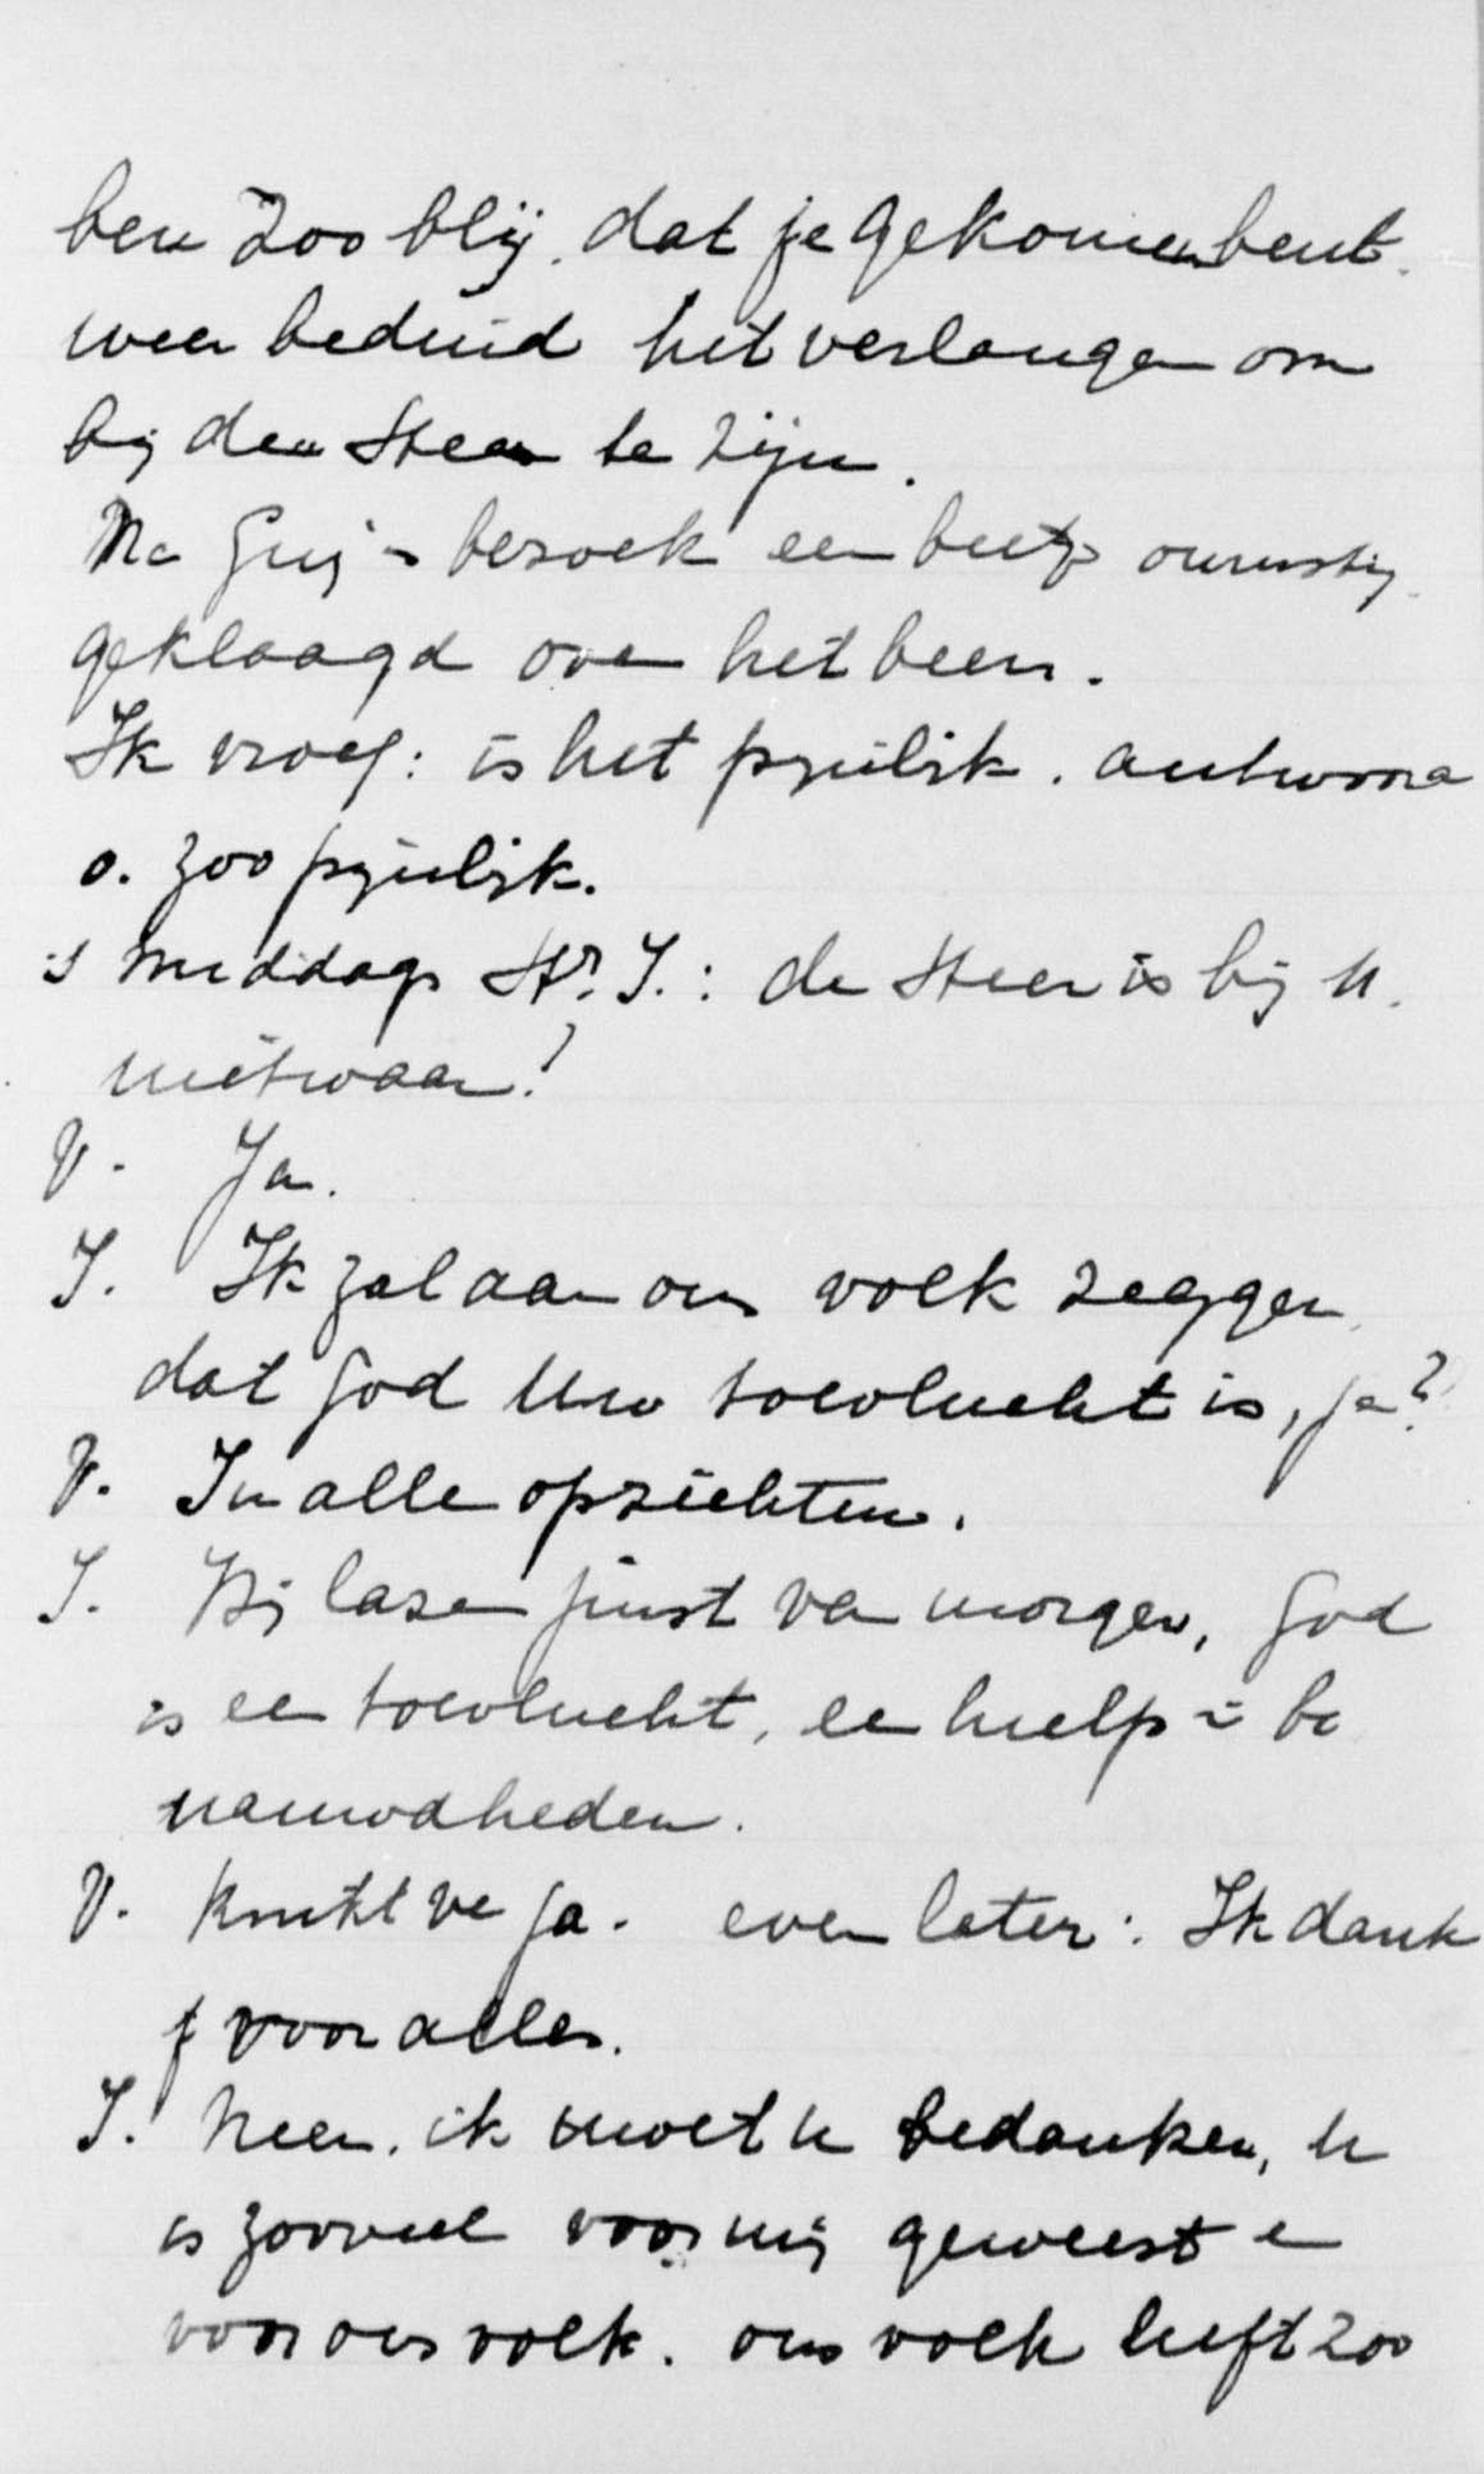 ben zoo blij. dat je gekomen bent.
weer beduid het verlangen om
bij den Heer te zijn.
Na Guy's bezoek een beetje onrustig.
geklaagd over het been.
Ik vroeg: is het pijnlijk. antwoord
o. zoo pijnlijk.
's middags Hr. I.: de Heer is bij U.
nietwaar?
V. Ja.
I. Ik zal aan ons volk zeggen
dat God Uw toevlucht is, ja?
V. In alle opzichten.
I. Wij lazen juist van morgen, God
is een toevlucht, een hulp in be
nauwdheden.
V. Knikt van ja. even later: Ik dank
je voor alles.
I. Neen. ik moet u bedanken, U
is zooveel voor mij geweest en
voor ons volk. ons volk heeft zoo